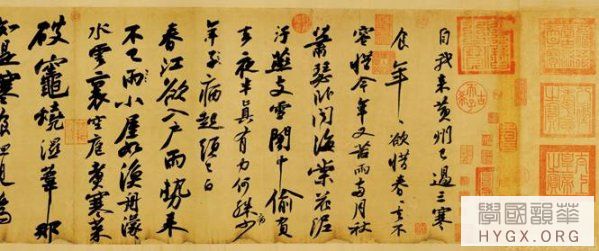 自我來黃州已過三寒
食年〻欲惜春〻去不
容惜今年又苦雨兩月秋
蕭瑟卧聞海棠花泥
汙燕支雪闇中偷負
去夜半真有力何殊少
年子病起須已白
春江欲入戶雨勢來
不已雨小屋如漁舟濛〻
水雲裏空庖煮寒菜
破竈燒濕葦那
知是寒食但見烏
學國韻華
HYGX.ORG